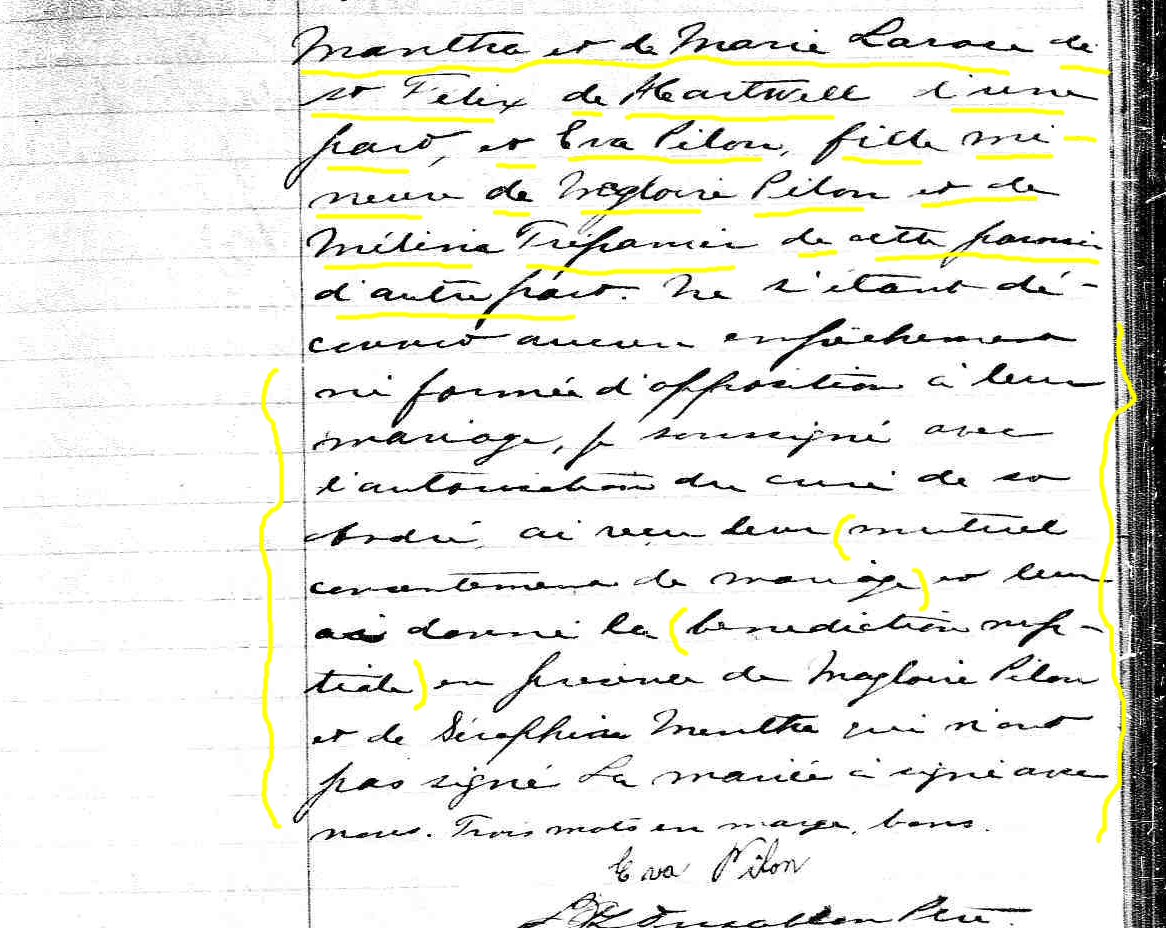 Mantha et de Marie Larose de
St Félix de Hartwell d'une
part, et Eva Pilon, fille mi
neure de Magloire Pilon et de
Mélina Trépanier de cette paroisse
d'autre part. Ne s'étant dé-
couvert aucun empêchement
ni formée d'opposition à leur
mariage, je soussigné avec
l'autorisation du curé de St
André, ai reçu leur mutuel
consentement de mariage et leur
ai donné la bénédiction nup-
tiale en présence de Magloire Pilon
et de Séraphin Mantha qui n'ont
pas signé La mariée a signé avec
nous. Trois mots en marge, bons.
Eva Pilon
Ptre.